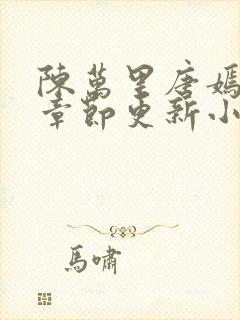 陳萬里唐嫣
章節更新小
馬嘯